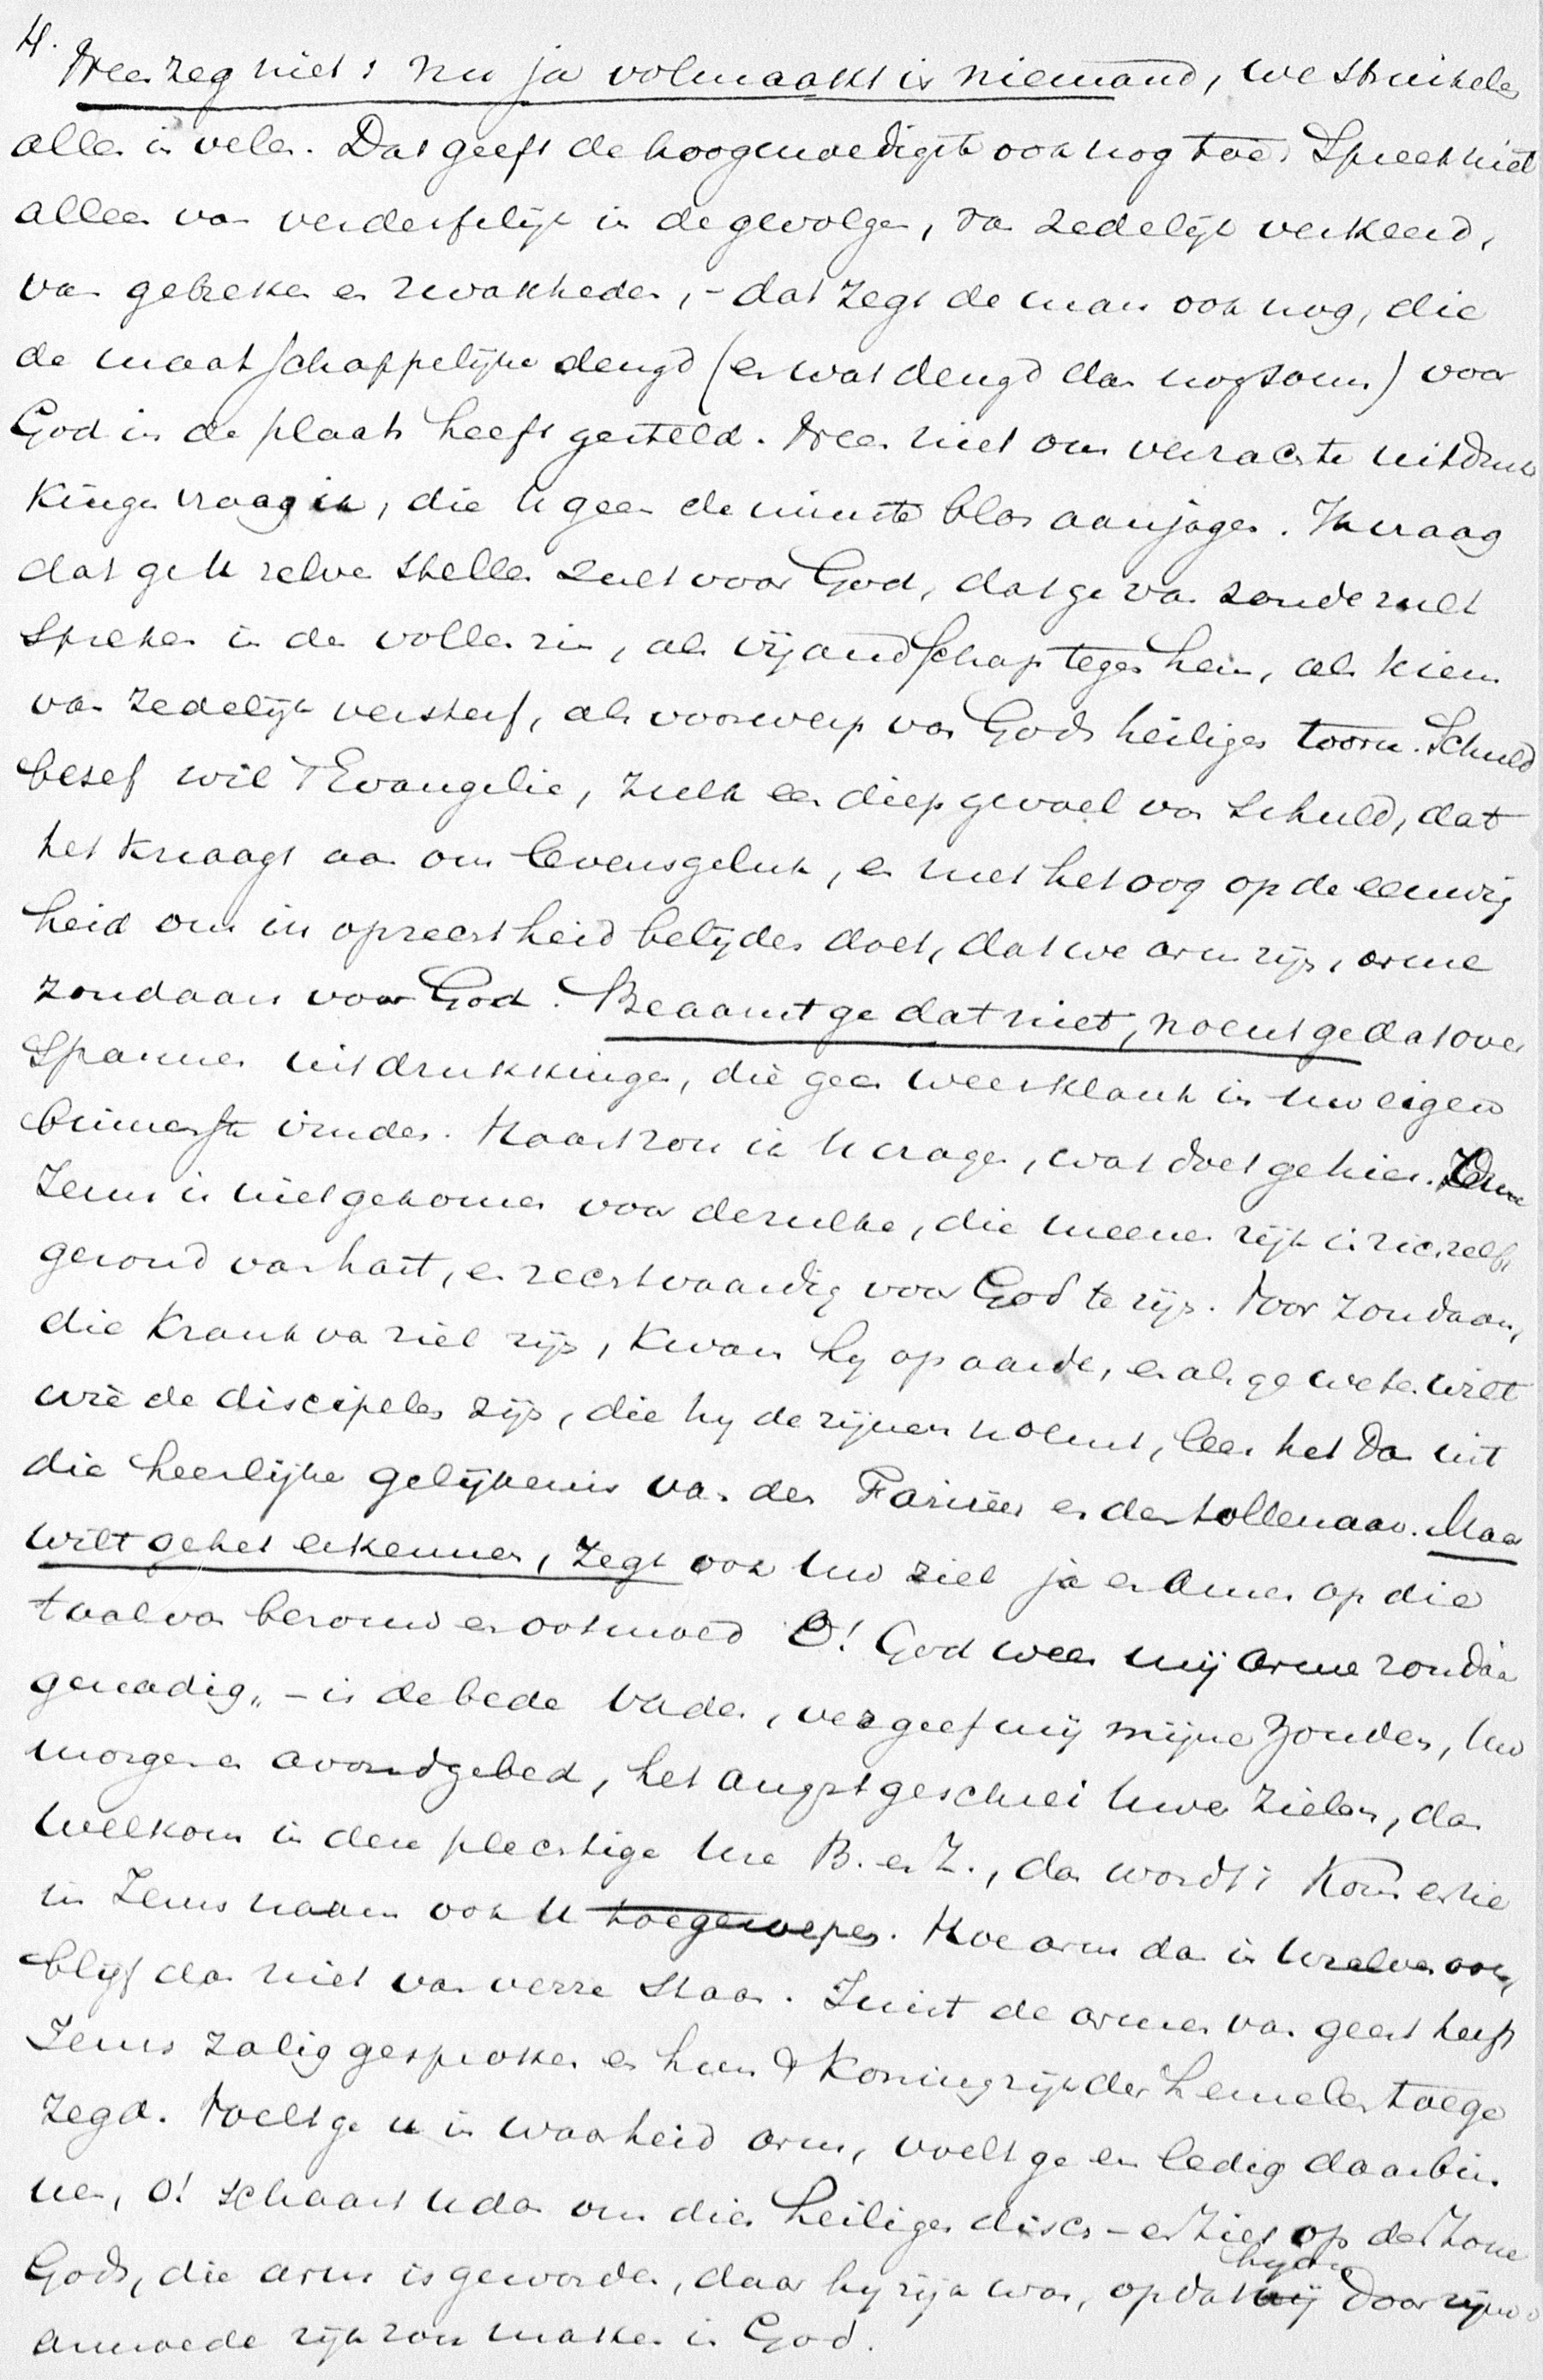 4.
Neen zeg niet: nu ja volmaakt is niemand, we struikelen
allen in velen. Dat geeft de hoogmoedigste ook nog toe. Spreek niet
alleen van verderfelijk in de gevolgen, van zedelijk verkeerd,
van gebreken en zwakheden, - dat zegt de man ook nog, die
de maatschappelijke deugd (en wat deugd dan nog soms) voor
God in de plaats heeft gesteld. Neen niet om verzachte uitdruk
kingen vraag ik, die U geen de minste blos aanjagen. Ik vraag
dat ge U zelven stellen zult voor God, dat ge van zonde zult
spreken in den vollen zin, als vijandschap tegen hem, als kiem
van zedelijk versterf, als voorwerp van Gods heiligen toorn. Schuld
besef wil 't Evangelie, zulk een diep gevoel van schuld, dat
het knaagt aan ons levensgeluk, en met het oog op de eeuwig
heid ons in oprechtheid belijden doet, dat we arm zijn, arme
zondaars voor God. Beaamt ge dat niet, noemt ge dat over
spannen uitdrukkingen, die geen weerklank in uw eigen
binnenste vinden. Haast zou ik U vragen, wat doet ge hier.
Jezus is niet gekomen voor dezulken, die meenen rijk in zichzelf,
gezond van hart, en rechtvaardig voor God te zijn. Voor zondaars,
die krank van ziel zijn, kwam hij op aarde, en als ge weten wilt
wie de discipelen zijn, die hij de zijnen noemt, leer het dan uit
die heerlijke gelijkenis van den Farizeer en den tollenaar. Maar
wilt ge het erkennen, zegt ook Uw ziel ja en amen op die
taal van berouw en ootmoed O! God wees mij arme zondaar
genadig" - is de bede Vader, vergeef mij mijne zonden, Uw
morgen en avondgebed, het angstgeschrei Uwer zielen, dan
welkom in deze plechtige ure B. en Z., dan wordt: Kom en zie
in Jezus naam ook U toegeroepen. Hoe arm dan in U zelven ook,
blijf dan niet van verre staan. Juist de armen van geest heeft
Jezus zalig gesproken en hun 't Koningrijk der hemelen toege
zegd. Voelt ge u in waarheid arm, voelt ge en ledig daarbin
nen, o! schaart U dan om dien heiligen disch - en ziet op den Zone
Gods, die arm is geworden, daar hij rijk was, opdat hij door zijne
armoede rijk zou maken in God.